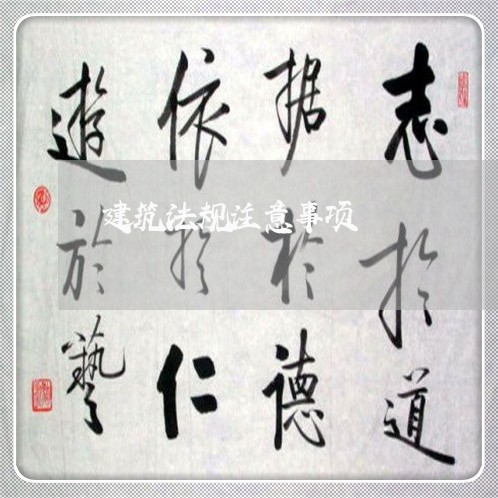 志於道
据於德
依於仁
遊於藝
建筑法规注意事项